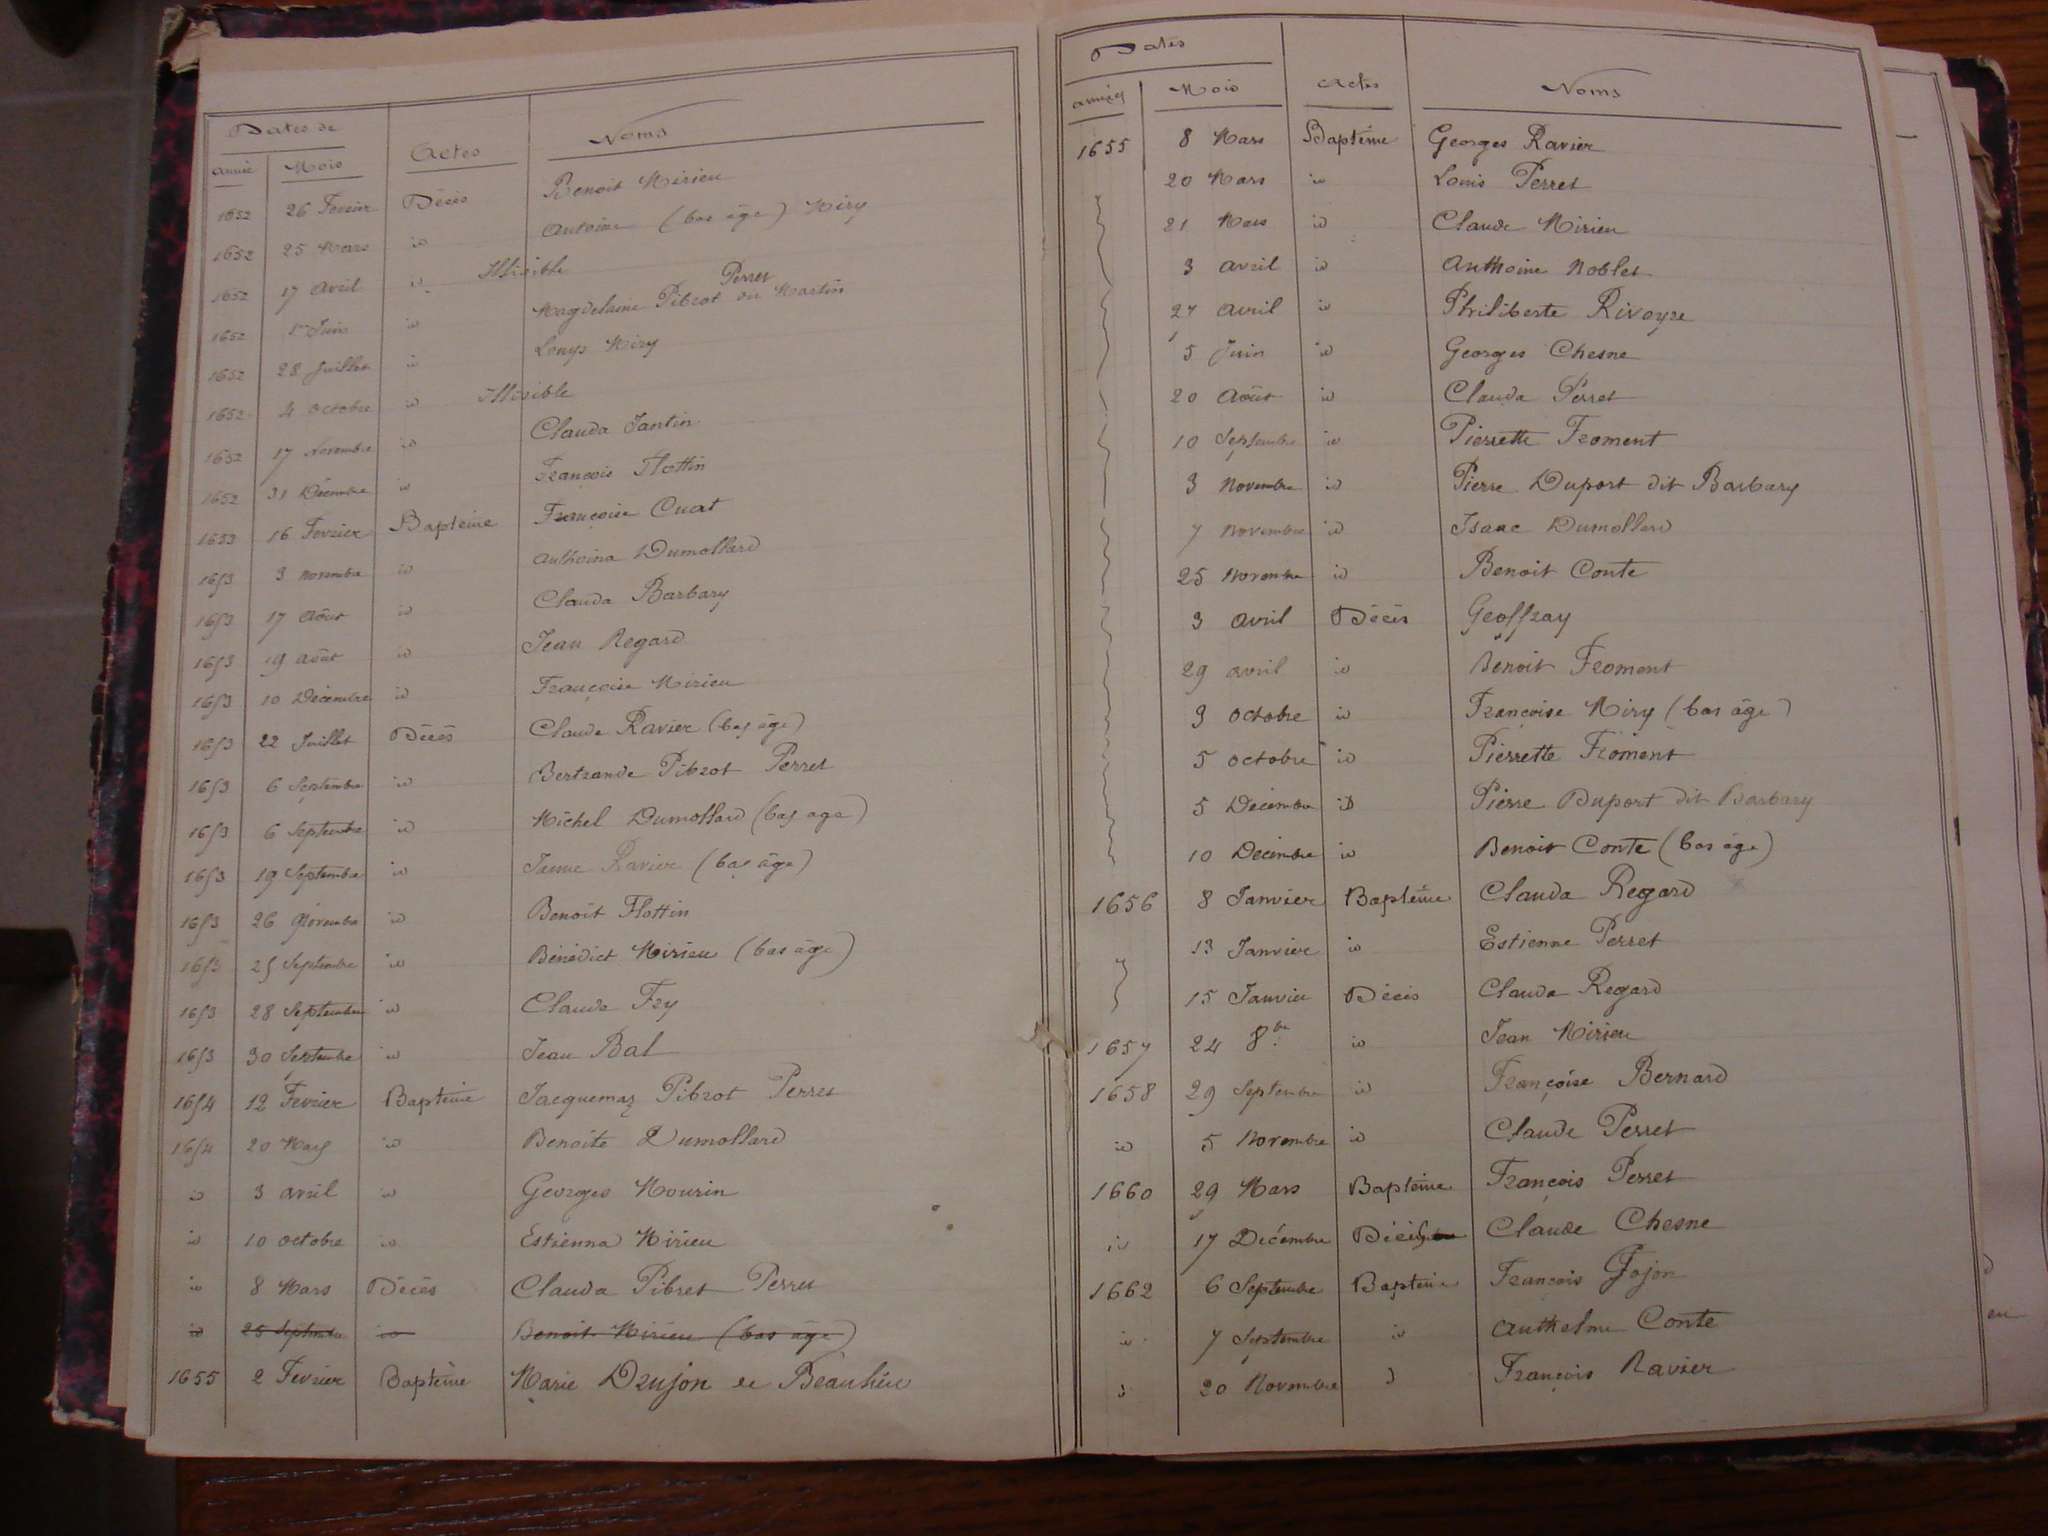 Dates de
année Mois Actes Noms
1652 26 Fevrier Décès Benoit Mirieu
1652 25 Mars id Antoine (bas âge) Miry
1652 17 Avril id Illisible
Perret
1652 1er Juin id Magdelaine Pibrot ou Martin
1652 28 Juillet id Louys Miry
1652 4 Octobre id Illisible
1652 17 Novembre id Clauda Jantin
1652 31 Décembre id François Flottin
1653 16 Fevrier Baptême Françoise Cuat
1653 3 Novembre id Anthoina Dumollard
1653 17 Août id Clauda Barbary
1653 19 Août id Jean Regard
1653 10 Décembre id Françoise Mirieu
1653 22 Juillet Décès Claude Ravier (bas âge)
1653 6 Septembre id Bertrande Pibrot Perret
1653 6 Septembre id Michel Dumollard (bas age)
1653 19 Septembre id Ravier (bas âge)
1653 26 Novembre id Benoit Flottin
1653 25 Septembre id Bénédict Mirieu (bas âge)
1653 28 Septembre id Claude Fry
1653 30 Septembre id Jean Bal
1654 12 Fevrier Baptême Jacquemaz Pibrot Perret
1654 20 Mars id Benoite Dumollard
id 3 avril id Georges Mourin
id 10 octobre id Estienna Mirieu
id 8 Mars Décès Clauda Pibret Perret
id 25 Septembre id Benoit Mirieu (bas âge)
1655 2 Fevrier Baptême Marie Drujon de Beaulieu
Dates
années Mois Actes Noms
1655 8 Mars Baptême Georges Ravier
20 Mars id Louis Perret
21 Mars id Claude Mirieu
3 avril id Anthoine Noblet
27 avril id Philiberte Rivoyre
5 Juin id Georges Chesne
20 Août id Clauda Perret
10 Septembre id Pierrette Froment
3 Novembre id Pierre Duport dit Barbary
7 Novembre id Isaac Dumollard
25 Novembre id Benoit Conte
3 avril Décès Geoffray
29 avril id Benoit Froment
3 Octobre id Françoise Miry (bas âge)
5 octobre id Pierrette Froment
5 Décembre id Pierre Duport dit Barbary
10 Décembre id Benoit Conte (bas âge)
1656 8 Janvier Baptême Clauda Regard
13 Janvier id Estienne Perret
15 Janvier Décès Clauda Regard
1657 24 8bre id Jean Mirieu
1658 29 Septembre id Françoise Bernard
id 5 Novembre id Claude Perret
1660 29 Mars Baptême François Perret
id 17 Décembre Décès Claude Chesne
1662 6 Septembre Baptême François Gojon
id 7 Septembre id Anthelme Conte
id 20 Novembre id François Ravier